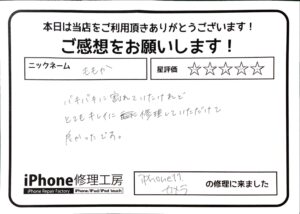 本日は当店をご利用頂きありがとうございます！
ご感想をお願いします！
ニックネーム
ももか
星評価 ☆☆☆☆☆
バキバキに割れていたけれど
とてもキレイに修理していただけて
良かったです。
iPhone修理工房
iPhone Repair Factory
iPhone/iPad/iPod touch
iPhone11
カメラ
の修理に来ました